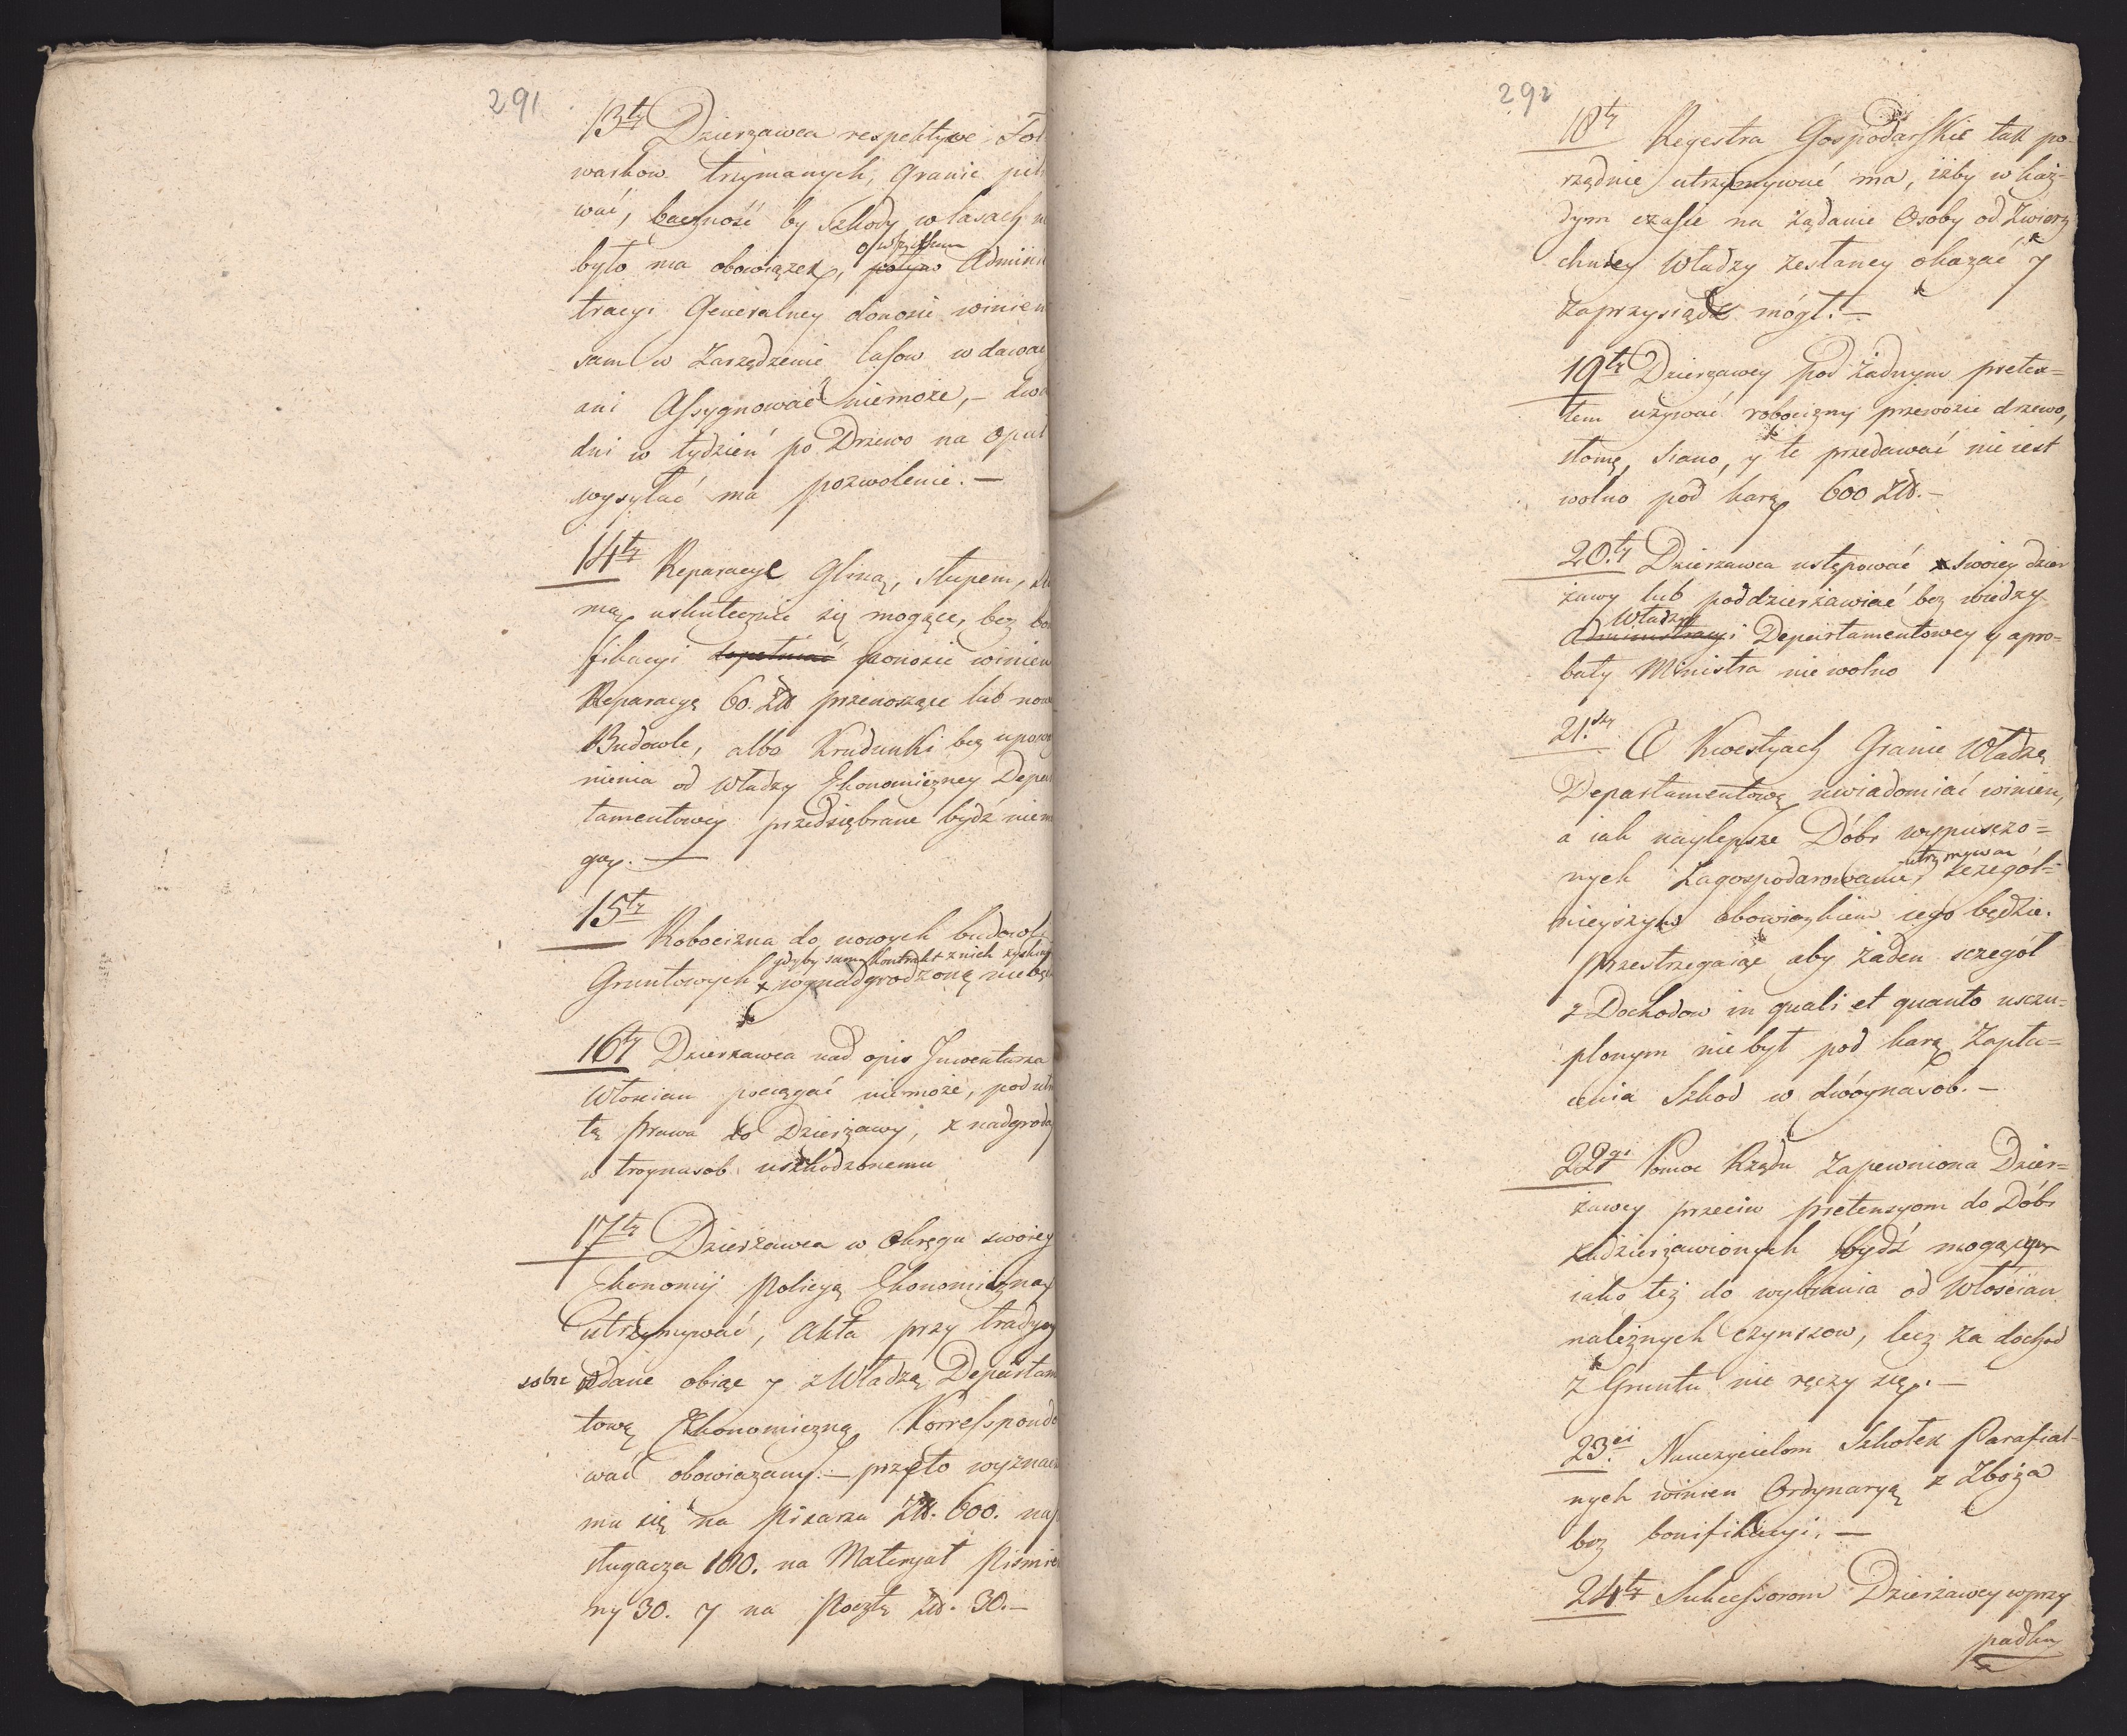 291
13ty Dzierzawca respektywe Fol
warkow trzymanych, Granic pil
wać, baczność by Szkody w lasach n
było ma obowiązek, o wszystkiem Admini
tracyi Generalney donosić winien
sam w Zarządzenie lasow wdawać
ani Assygnować niemoże, – dwa
dni w tydzień po Drzewo na opał
wysyłać ma pozwolenie. –
14ty Reparacye Gliną, Słupem,
mą uskutecznić się mogące, bez bo
fikacyi ponosić winien
Reparacyą 60. Zł przenoszące lub nowe
Budowle, albo Krudunki bez upow
nienia od Władzy Ekonomiczney Depar
tamentowey przedsiębrane bydź niem
gą. —
15ty Robocizna do nowych budowle
gdyby sam kontrakt z nich zyskiw
Gruntowych wynadgrodzoną niebę
16ty Dzierzawca nad opis Inwentarza
Włoscian pociągać niemoże, pod utra
tą prawa do Dzierzawy, z nadgrodą
w troynasob uszkodzonemu
17ty Dzierżawca w Okręgu swoiey
Ekonomij Policyą Ekonomiczną
utrzymywać, Akta przy tradycy
sobie oddane obiąć y z Władzą Departam
tową Ekonomiczną Korresspondo
wać obowiązany. – przeto wyznacz
mu się na Pisarza Zł. 600. na p
sługacza 100. na Materyał Piśmie
ny 30. y na Pocztę Zł. 30. –
292
18ty Regestra Gospodarskie tak po
rządnie utrzymywać ma, iżby w każ-
dym czasie na żądanie Osoby od Zwierz
chniey Władzy zesłaney okazać y
zaprzysiądz mógł. –
19ty Dzierzawcy pod żadnym pretex=
tem używać robocizny przewozić drzewo,
słomę, siano, y te przedawać nie iest
wolno pod karą 600 Zł. –
20.ty Dzierzawca ustępować swoiey dzier
żawy lub poddzierżawiać bez wiedzy
Władzy
Administracyi Departamentowey y apro=
baty Ministra nie wolno
21.szy O Kwestyach Granic Władzę
Departamentową uwiadomiać winien,
a iak naylepsze Dóbr wypusczo=
utrzymywać
nych Zagospodarowanie, sczegól=
nieyszym obowiązkiem iego będzie.
Przestrzegaiąc aby żaden sczegół
z Dochodow in quali et quanto usczu=
plonym nie był pod karą Zapła=
cenia Szkod w dwóynasób. –
22gi Pomoc Rządu Zapewniona Dzier=
żawcy przeciw pretensyom do Dóbr
zadzierżawionych bydź mogącym
iako też do wybrania od Włościan
należnych Czynszow, lecz za dochod
z Gruntu nie ręczy się. –
23.ci Nauczycielom Szkołek Parafial-
nych winien Ordynaryą z Zboża
bez bonifikacyi. —
24ty Sukcessorom Dzierżawcy w przy
padku